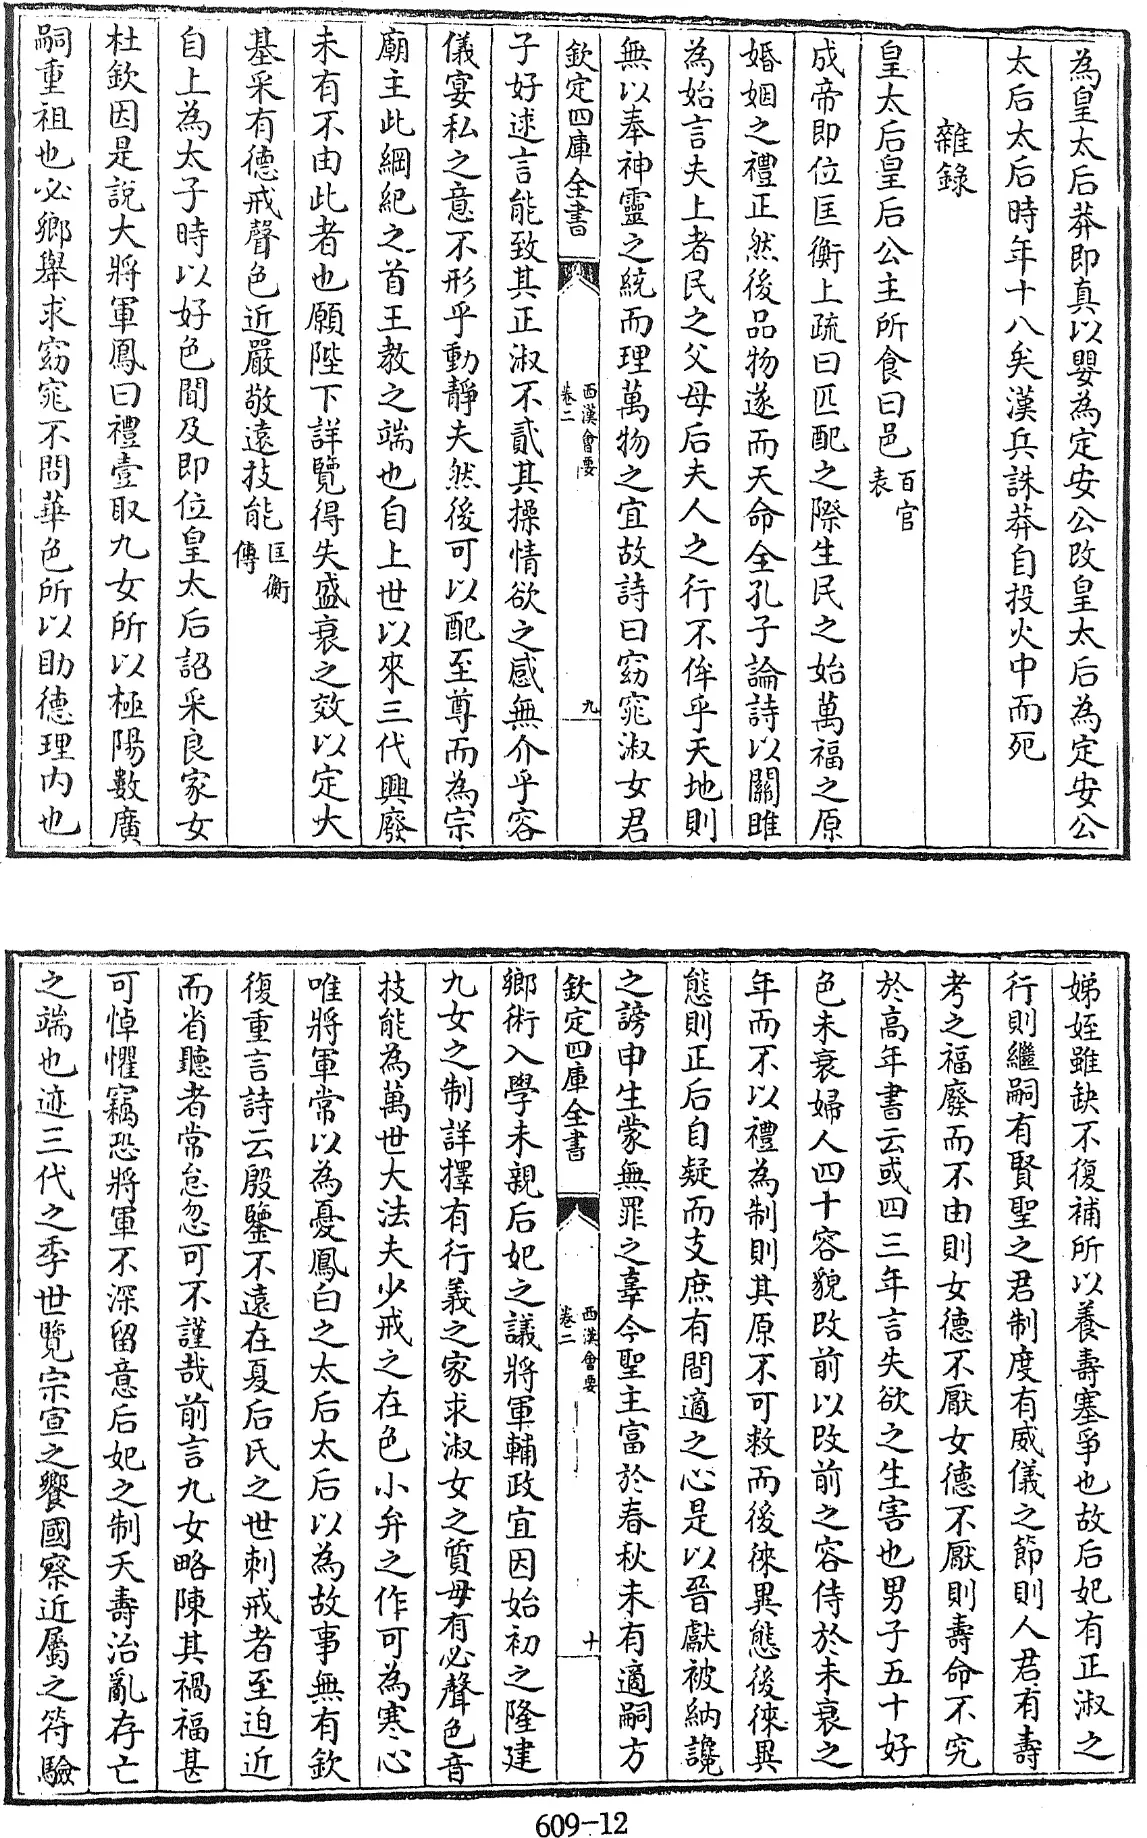 為皇太后莽即真以嬰為定安公改皇太后為定安公
太后太后時年十八矣漢兵誅莽自投火中而死
雜錄
皇太后皇后公主所食曰邑百官表
成帝即位匡衡上疏曰匹配之際生民之始萬福之原
婚姻之禮正然後品物遂而天命全孔子論詩以關雎
為始言夫上者民之父母后夫人之行不侔乎天地則
無以奉神靈之統而理萬物之宜故詩曰窈窕淑女君
欽定四庫全書 西漢會要卷二 九
子好逑言能致其正淑不貳其操情欲之感無介乎容
儀宴私之意不形乎動靜夫然後可以配至尊而為宗
廟主此綱紀之首王教之端也自上世以來三代興廢
未有不由此者也願陛下詳覽得失盛衰之效以定大
基采有德戒聲色近嚴敬遠技能匡衡傳
自上為太子時以好色聞及即位皇太后詔采良家女
杜欽因是說大將軍鳳曰禮壹取九女所以極陽數廣
嗣重祖也必鄉舉求窈窕不問華色所以助德理內也
娣姪雖缺不復補所以養壽塞爭也故后妃有正淑之
行則繼嗣有賢聖之君制度有威儀之節則人君有壽
考之福廢而不由則女德不厭女德不厭則壽命不究
於高年書云或四三年言失欲之生害也男子五十好
色未衰婦人四十容貌改前以改前之容侍於未衰之
年而不以禮為制則其原不可救而後徠異態後徠異
態則正后自疑而支庶有間適之心是以晉獻被納讒
之謗申生蒙無罪之辜今聖主富於春秋未有適嗣方
欽定四庫全書 西漢會要卷二 十
鄉術入學未親后妃之議將軍輔政宜因始初之隆建
九女之制詳擇有行義之家求淑女之質毋有必聲色音
技能為萬世大法夫少戒之在色小弁之作可為寒心
唯將軍常以為憂鳳白之太后太后以為故事無有欽
復重言詩云殷鑒不遠在夏后氏之世刺戒者至迫近
而省聽者常怠忽可不謹哉前言九女略陳其禍福甚
可悼懼竊恐將軍不深留意后妃之制夭壽治亂存亡
之端也迹三代之季世覽宗宣之饗國察近屬之符驗
609-12